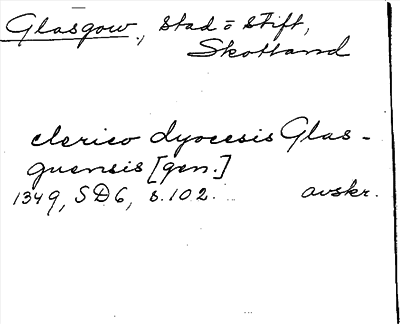 Glasgow, stad o stift,
Skottland
clerico dyocesis Glas-
guensis [gen.]
1349, SD6, s. 102. avskr.